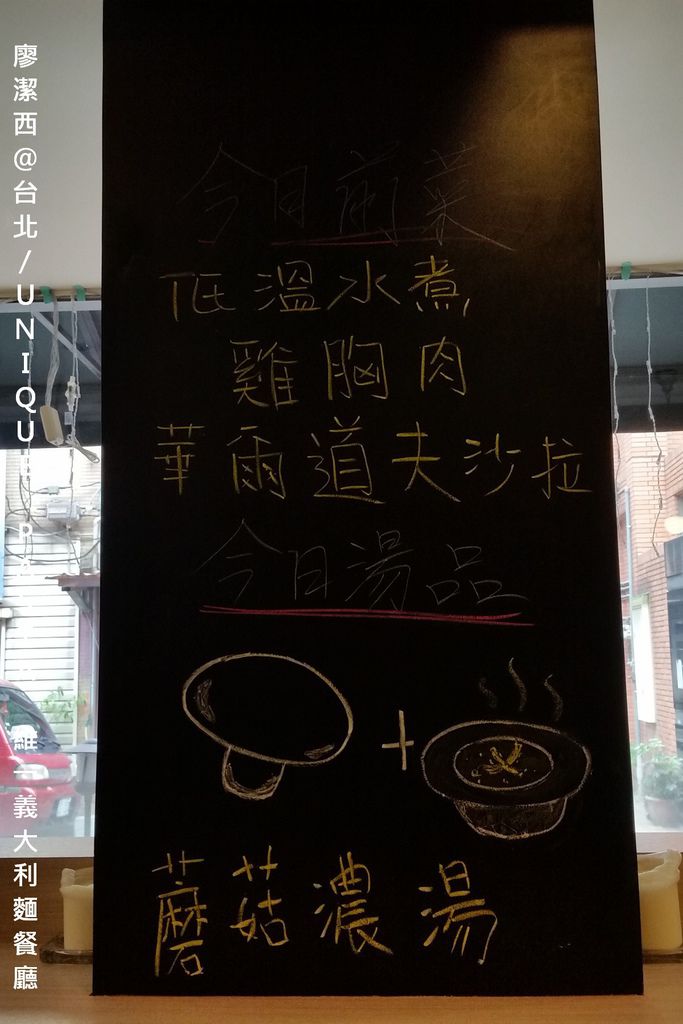 今日前菜
低溫水煮
雞胸肉
華爾道夫沙拉
今日湯品
+
蘑菇濃湯
廖潔西@台北/UNIQUE
唯一義大利麵餐廳